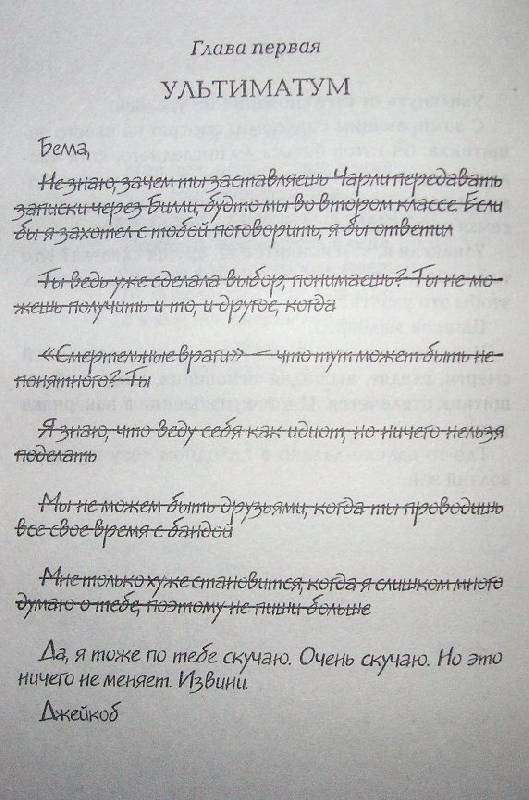 Глава первая
УЛЬТИМАТУМ
Белла,
Не знаю, зачем ты заставляешь Чарли передавать
записки через Билли, будто мы во втором классе. Если
бы я захотел с тобой поговорить, я бы ответил
Ты ведь уже сделала выбор, понимаешь? Ты не мо-
жешь получить и то, и другое, когда
«Смертельные враги» — что тут может быть не-
понятного? Ты
Я знаю, что веду себя как идиот, но ничего нельзя
поделать
Мы не можем быть друзьями, когда ты проводишь
все свое время с бандой
Мне только хуже становится, когда я слишком много
думаю о тебе, поэтому не пиши больше
Да, я тоже по тебе скучаю. Очень скучаю. Но это
ничего не меняет. Извини.
Джейкоб